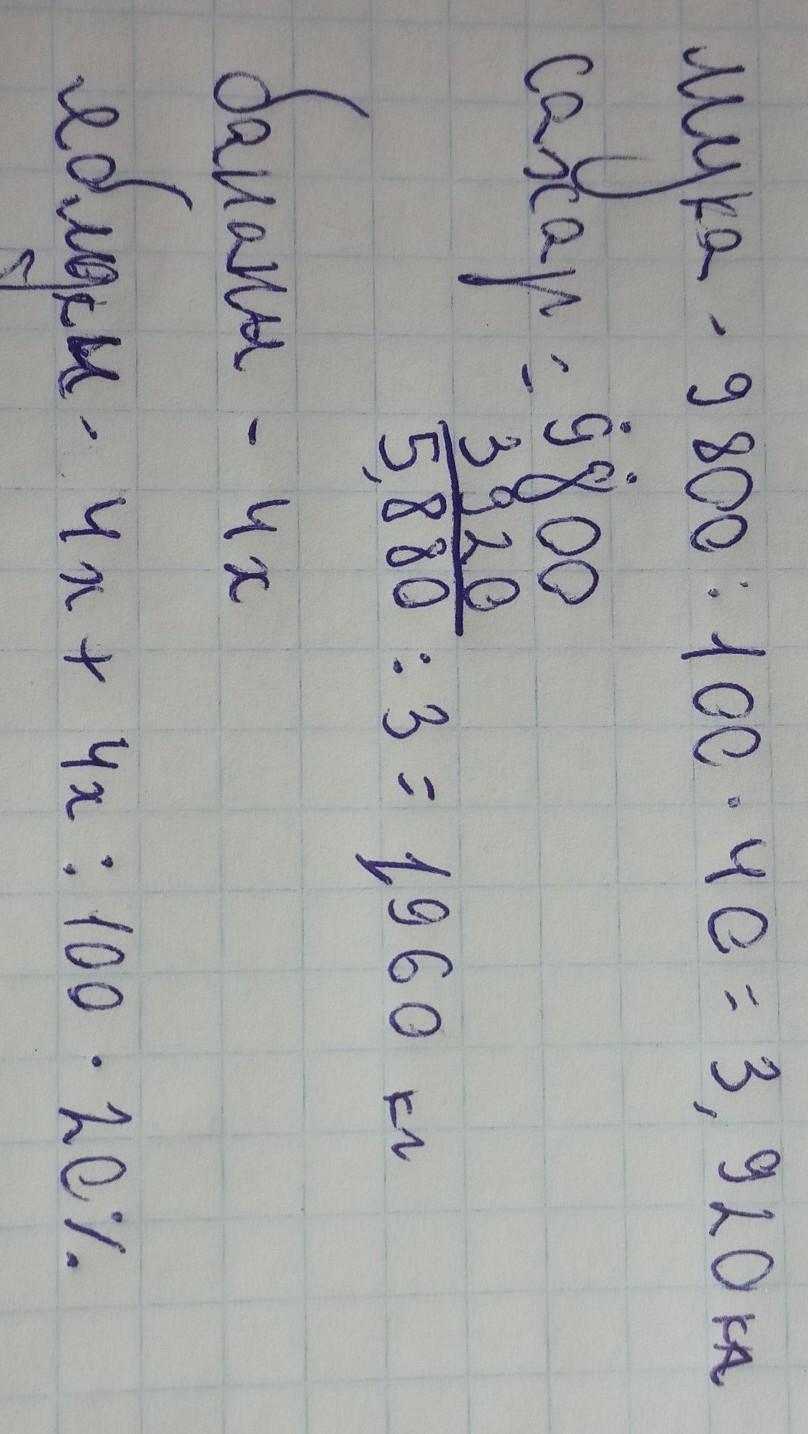 Мука - 9800 : 100 · 40 = 3,920 кл
Сахар = 9800
3920
5,880 : 3 = 1960 кг
бананы - 4х
яблоки - 4х + 4х : 100 · 20%